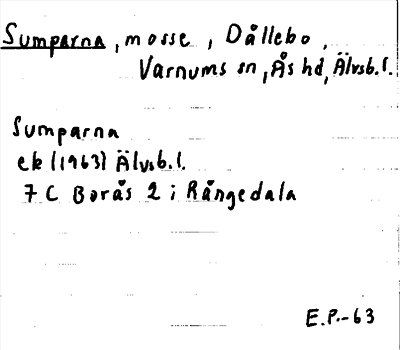 Sumparna, mosse, Dållebo,
Varnums sn, Ås hd, Älvsb. l.
Sumparna
ek (1963) Älvsb. l.
7 C Borås 2 i Rångedala
E.P.-63